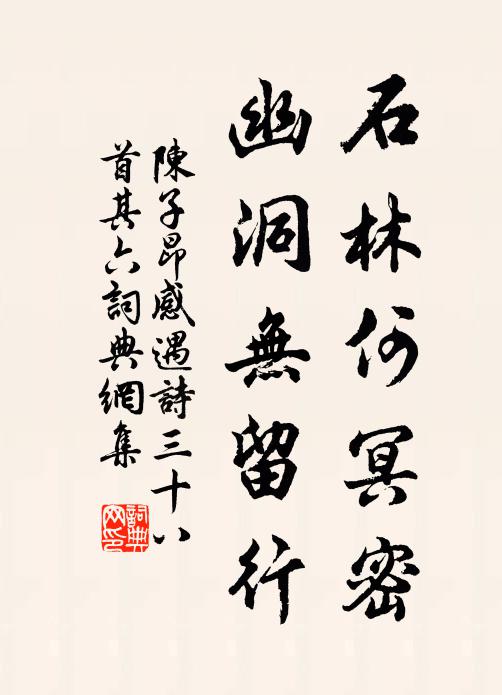 石林何冥密
幽洞無留行
陳子昂感遇詩三十八
首其六詞典網集
詞典
网印